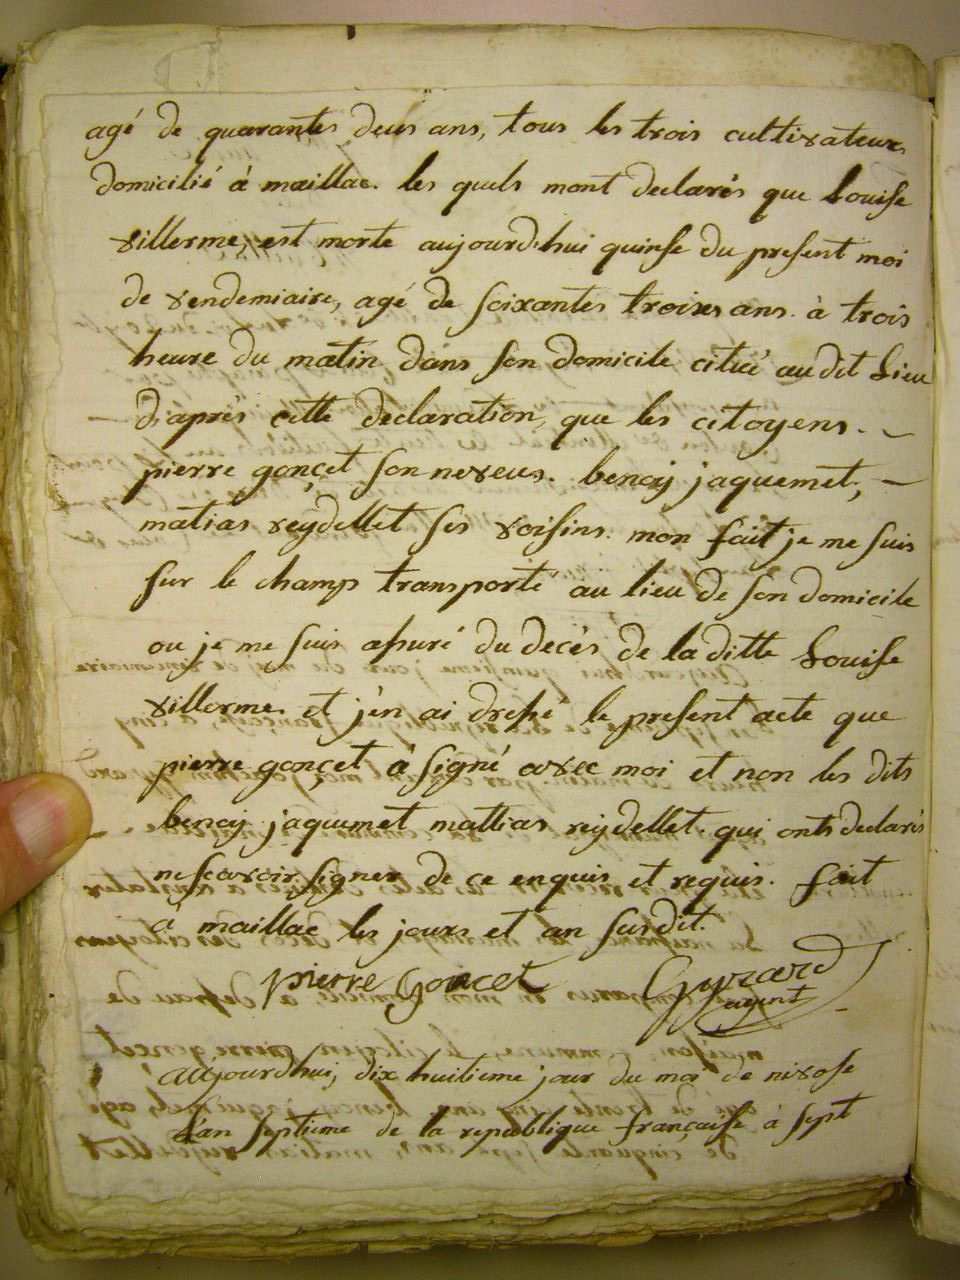 agé de quarantes deus ans, tous les trois cultivateurs
domicilié à maillac. les quels mont declarés que Louise
villerme, est morte aujourd'hui quinse du present moi
de vendemiaire, agé de soixantes troixes ans. à trois
heure du matin dans son domicile citué au dit Lieu
d'après cette declaration, que les citoyens.
pierre gonçet son neveus. benoij jaquemet,
matias reydellet ses voisins. mon fait je me suis
sur le champ transporté au lieu de son domicile
ou je me suis assuré du decés de la ditte Louise
villerme. et j'en ai dressé le present acte que
pierre gonçet à signé avec moi et non les dits
benoy jaquemet mattias reydellet. qui onts declarés
ne scavoir signer de ce enquis et requis. fait
à maillac les jours et an susdit.
pierre Goncet Gyrard
agent
aujourdhui, dix huitieme jour du moi de nivose
l'an septieme de la republique française à sept